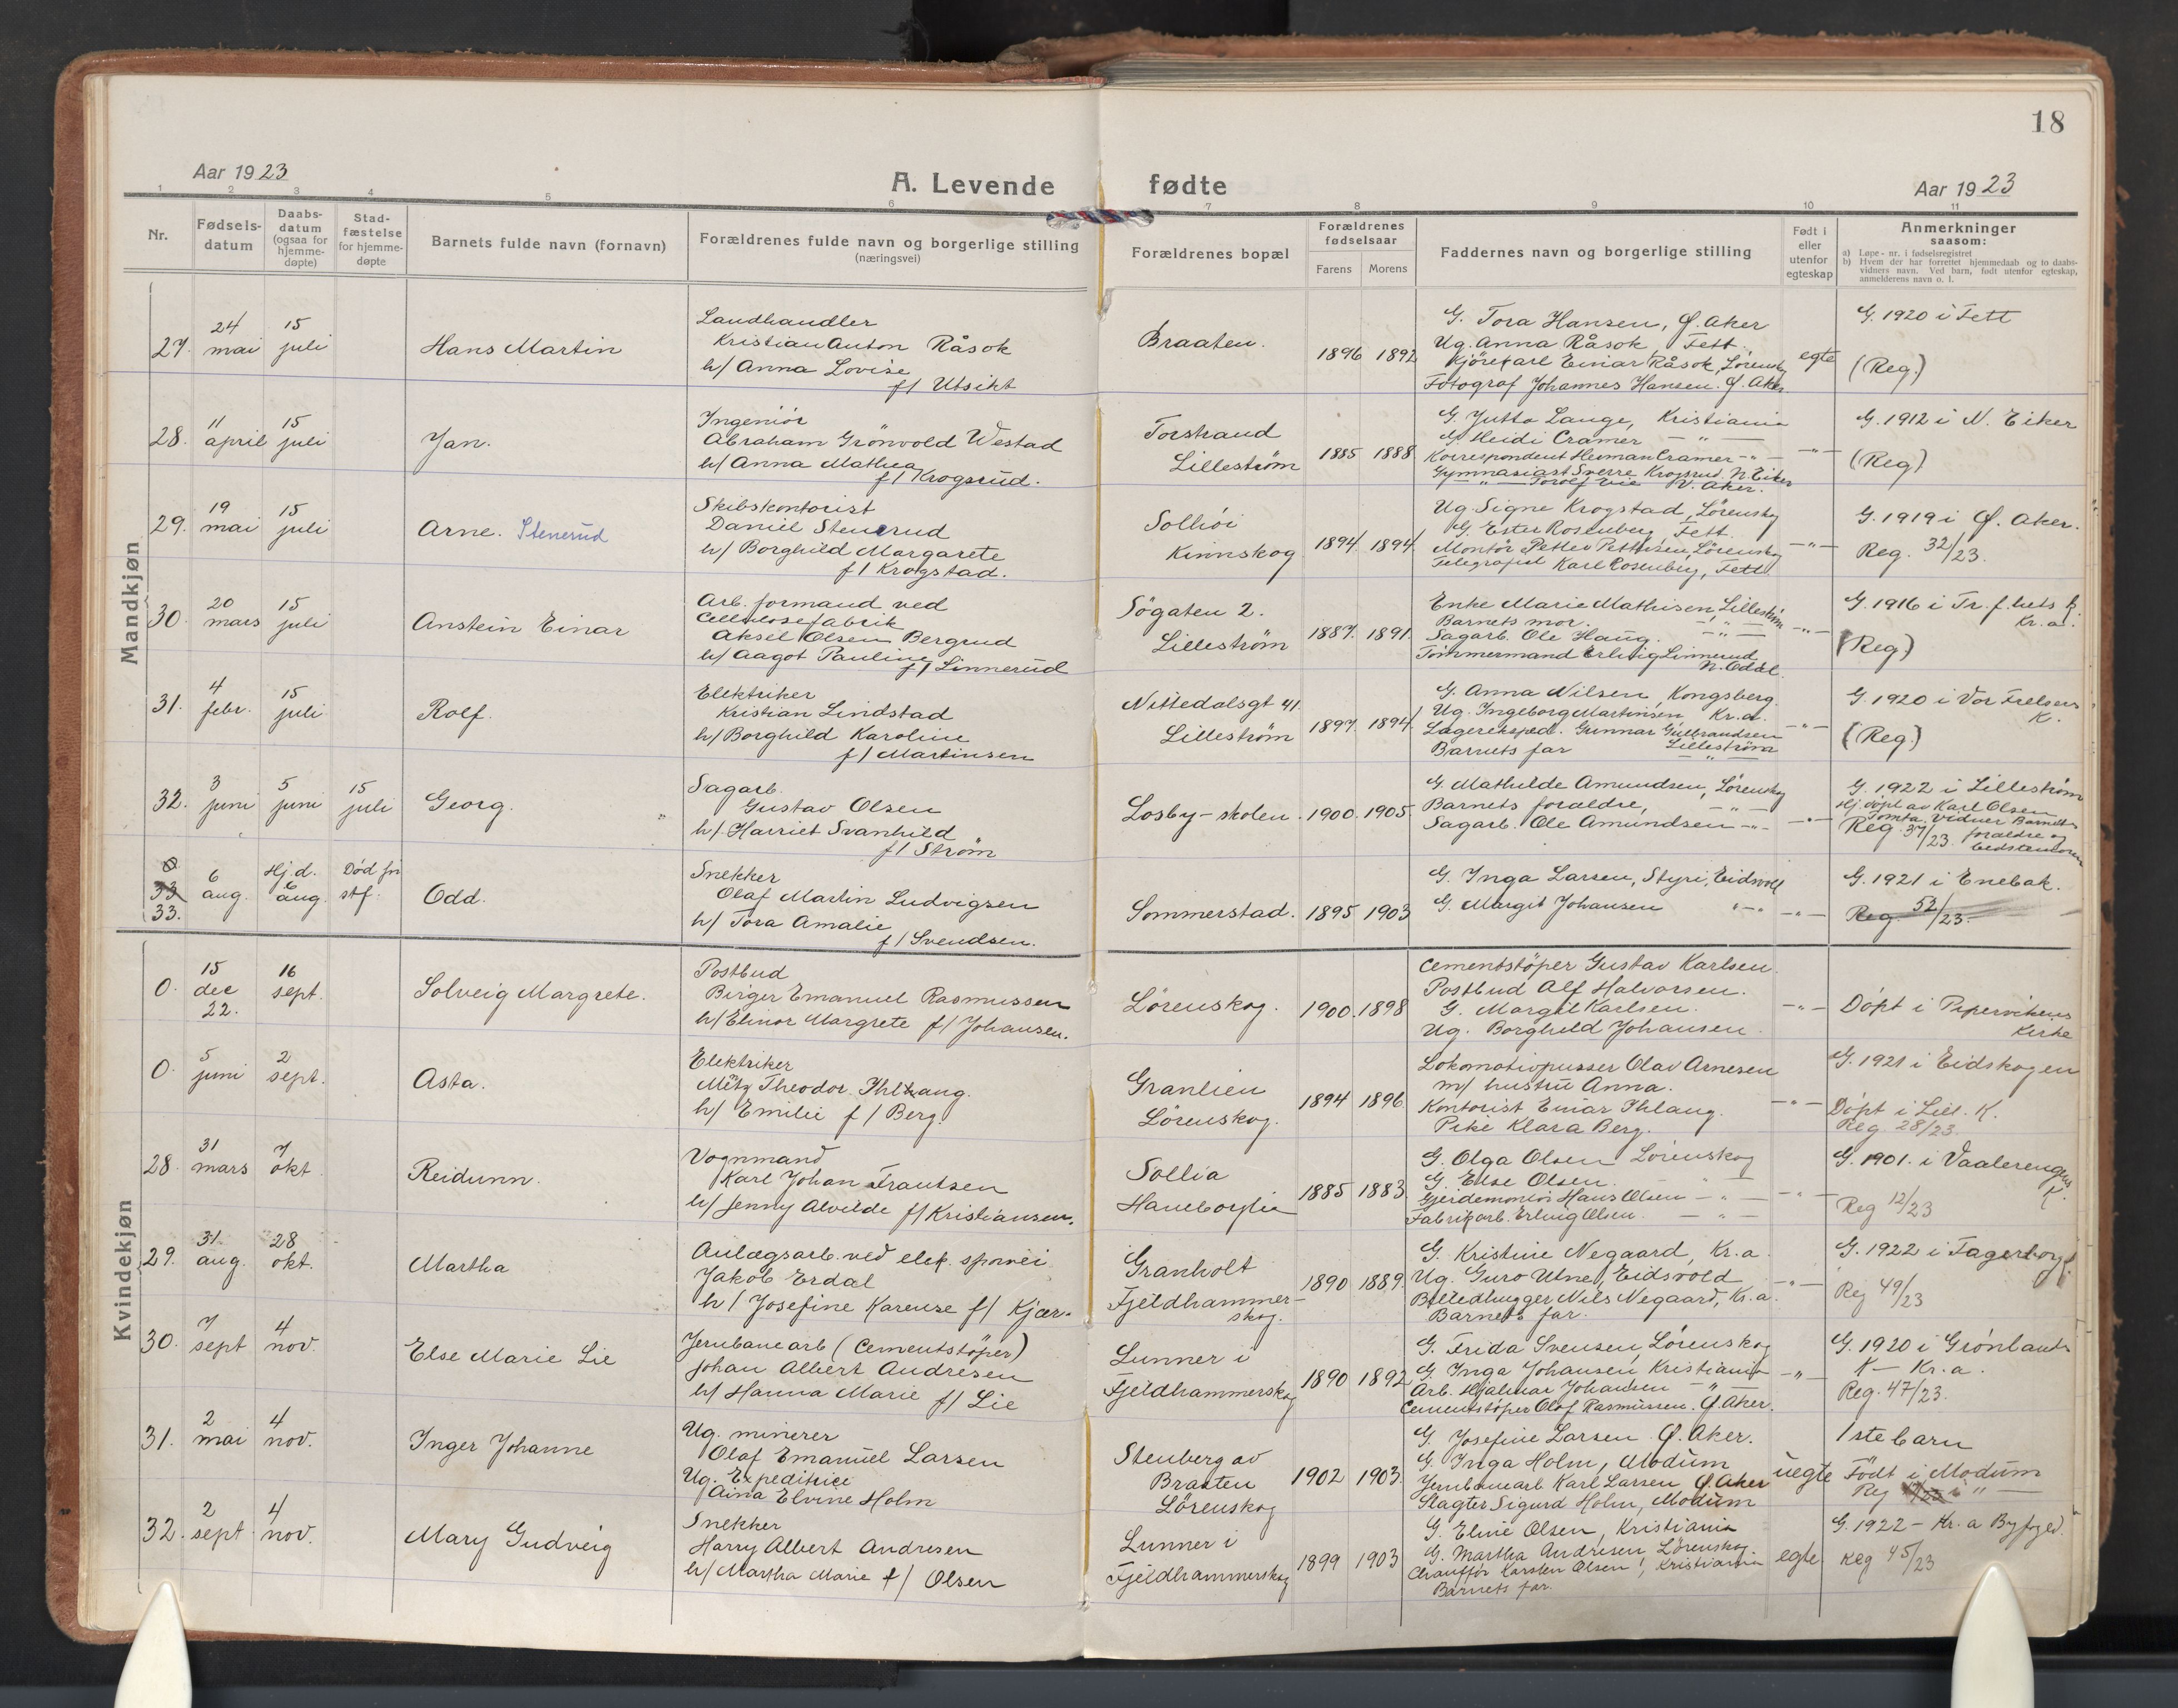 18
Aar 1923
A. Levende fødte
Aar 1923
1 2 3 4 5 6 7 8 9 10 11
Nr.
Fødsels-
datum
Daabs-
datum
(ogsaa for
hjemme-
døpte)
Stad-
fæstelse
for hjemme-
døpte
Barnets fulde navn (fornavn)
Forældrenes fulde navn og borgerlige stilling
(næringsvei)
Forældrenes bopæl
Forældrenes
fødselsaar
Farens Morens
Faddernes navn og borgerlige stilling
Født i
eller
utenfor
egteskap
Anmerkninger
saasom:
a) Løpe-nr. i fødselsregistret
b) Hvem der har forrettet hjemmedaab og to daabs-
vidners navn. Ved barn, født utenfor egteskap,
anmelderens navn o. l.
Mandkjøn
27. 24 mai
15 juli
Hans Martin
Landhandler
Kristian Anton Råsok
h/ Anna Lovise
f/ Utsikt
Braaten.
1896 1892
G. Tora Hansen, Ø. Aker
Ug. Anna Råsok, Fett.
Kjørekarl Einar Råsok, Lørenskg
Fotograf Johannes Hansen. Ø. Aker
egte
G. 1920 i Fett
(Reg.)
28. 11 april
15 juli
Jan.
Ingeniør
Abraham Grønvold Westad
h/ Anna Mathea
f/ Krogsrud.
Torstrand
Lillestrøm
1885 1888
G. Jutta Lange, Kristiania
G. Heidi Cramer — " —
Korrespondent Herman Cramer - " -
Gymnasiast Sverre Krogsrud N. Eiker
— " — Torolf Vie V. Aker.
- " -
G. 1912 i N. Eiker
(Reg)
29. 19 mai
15 juli
Arne. Stenerud
Skibskontorist
Daniel Stenerud
h/ Borghild Margarete
f/ Krogstad.
Solhöi
Kinnskog
1894 1894
Ug Signe Krogstad, Lørenskg
G. Ester Rosenberg, Fett.
Montør Petter Pettersen, Lørenskg
Telegrafist Karl Rosenberg, Fett.
- " -
G. 1919 i Ø. Aker.
Reg. 32/23.
30. 20 mars
15 juli
Anstein Einar
Arb. formand ved
Cellulosefabrik
Aksel Olsen Bergrud
h/ Aagot Pauline
f/ Linnerud
Søgaten 2.
Lillestrøm
1887. 1891.
Enke Marie Mathisen Lillestrøm
Barnets mor. — " —
Sagarb. Ole Haug. — " —
Tømmermand Erling Linnerud
N. Odal.
- " -
G. 1916 i Tr. f. hets k.
Kr. a.
(Reg)
31. 4 febr.
15 juli
Rolf.
Elektriker
Kristian Lindstad
h/ Borghild Karoline
f/ Martinsen
Nittedalsgt 41.
Lillestrøm
1897. 1894.
G. Anna Nilsen, Kongsberg.
Ug. Ingeborg Martinsen Kr.a.
Lagereksped. Gunnar Gulbrandsen
Lillestrøm
Barnets far — " —
- " -
G. 1920 i Vor Frelsers
K.
(Reg.)
32. 3 juni
5 juni
15 juli
Georg.
Sagarb.
Gustav Olsen
h/ Harriet Svanhild
f/ Strøm
Losby-skolen.
1900. 1905.
G. Mathilde Amundsen, Lørenskg
Barnets forældre, — " —
Sagarb. Ole Amundsen - " -
- " -
G. 1922 i Lillestrøm
Hj. døpt av Karl Olsen
Tomta. Vidner Barnets
Reg 37/23. forældre og
bedstemoren
0
33
33.
6 aug.
Hj. d. 6 aug.
Død før stf.
Odd.
Snekker
Olaf Martin Ludvigsen
h/ Tora Amalie
f/ Svendsen.
Sommerstad.
1895 1903
G. Inga Larsen, Styri, Eidsvoll
G. Margit Johansen " - "
- " -
G. 1921 i Enebak.
Reg. 52/23.
Kvindekjøn
0. 15 dec 22.
16 sept.
Solveig Margrete.
Postbud
Birger Emanuel Rasmussen
h/ Elinor Margrete f/ Johansen.
Lørenskog.
1900. 1898
Cementstøper Gustav Karlsen.
Postbud Alf Halvorsen.
G. Margit Karlsen.
Ug. Borghild Johansen.
- " -
Döpt i Pipervikens
Kirke
0. 5 juni
2 sept.
Asta.
Elektriker
Metz Theodor Ihlang.
h/ Emilie f/ Berg.
Granlien
Lörenskog.
1894 1896
Lokomotivpusser Olav Arnesen
m/ hustru Anna.
Kontorist Einar Ihlang.
Pike Klara Berg.
- " -
G. 1921 i Eidskogen
Döpt i Lill. K.
Reg 28/23.
28. 31 mars
7 okt.
Reidunn.
Vognmand
Karl Johan Frantsen
h/ Jenny Alvilde f/ Kristiansen.
Sollia
Haneborglia
1885 1883
G. Olga Olsen Lörenskog
G. Else Olsen. " "
Gjeidemontör Hans Olsen — " —
Fabrikarb. Erling Olsen. — " —
- " -
G. 1901. i Vaalerengens
K.
Reg 12/23
29. 31. aug.
28 okt.
Martha
Anlægsarb. ved elek. sporvei
Jakob Erdal
h/ Josefine Karense f/ Kjær.
Granholt
Fjeldhammer-
skog.
1890 1889.
G. Kristine Negaard, Kr.a.
Ug. Guro Utne, Eidsvold
Billedhugger Nils Negaard, Kr.a.
Barnets far.
- " -
G. 1922 i Fagerborg k.
Reg 49/23
30. 7 sept
4 nov.
Else Marie Lie
Jernbanearb (Cementstøper)
Johan Albert Andresen
h/ Hanna Marie f/ Lie
Lunner i
Fjeldhammerskog
1890 1892
G. Frida Svensen, Lørenskog
G. Inga Johansen, Kristiania
Arb. Hjalmar Johansen — " —
Cementstøper Olaf Rasmussen. Ø. Aker.
- " -
G. 1920 i Grönlands
K — Kr. a.
Reg. 47/23.
31. 2 mai
4 nov.
Inger Johanne
Ug. minerer
Olaf Emanuel Larsen
Ug. Expeditrice
Aina Elvine Holm
Stenberg av
Braaten
Lörenskog
1902 1903.
G. Josefine Larsen Ø. Aker.
G. Inga Holm, Modum
Jernbanearb Karl Larsen Ø. Aker
Slagter Sigurd Holm, Modum
uegte
1ste barn
Födt i Modum
Reg i " —
32. 2 sept.
4 nov.
Mary Gudveig
Snekker
Harry Albert Andresen
h/ Martha Marie f/ Olsen
Lunner i
Fjeldhammerskog
1899 1903
G. Elvie Olsen, Kristiania
G. Martha Andresen Lörenskog.
Chauffør Karsten Olsen, Kristiania
Barnets far.
egte
G. 1922 - Kr. a Byfogd.
Reg 45/23